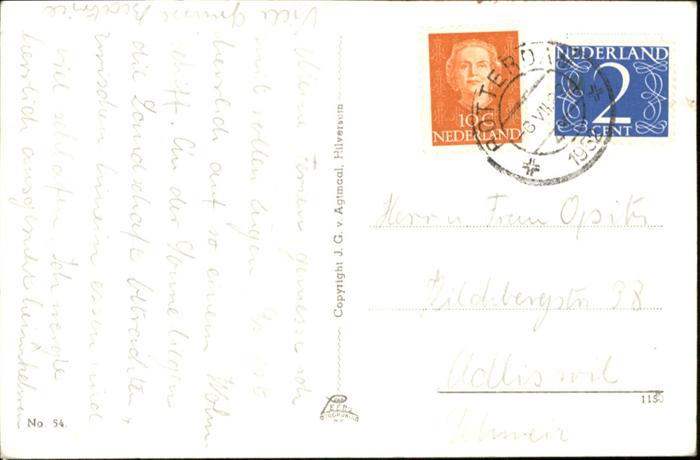 Viele Grüsse Beatrice
Meine Ferien geniesse ich
mit vollen Zügen. Es ist
herrlich auf so einem Wohn-
schiff. An der Sonne liegen
die Landschaft betrachten,
zwischen hinein essen und
viel schlafen. Ich werde
herrlich ausgeruht heimkehren
No. 54.
Copyright J. G. v. Agtmaal, Hilversum
10 C
NEDERLAND
NEDERLAND
2
CENT
ROTTERDAM
VII
Herrn u Frau Opitz
Zildbergstr 98
Adliswil
Schweiz
1150